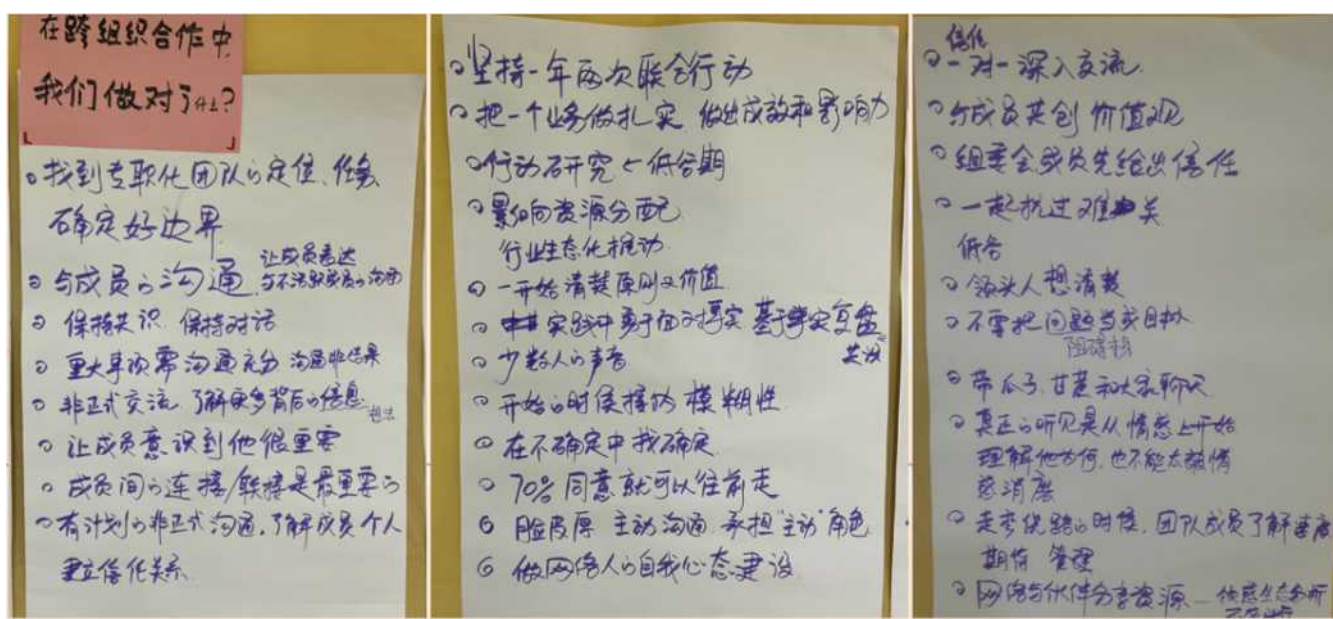 在跨组织合作中,
我们做对了什么?
找到专职化团队的定位、任务
确定好边界
与成员的沟通 让成员表达
与不活跃成员的沟通
保持共识 保持对话
重大事项需沟通充分 沟通非结果
非正式交流、了解更多背后的信息 想法
让成员意识到他很重要
成员间的连接/联接是最重要的
有计划的非正式沟通,了解成员个人
建立信任关系
坚持一年两次联合行动
把一个业务做扎实 做出成效和影响力
行动研究 低谷期
影响资源分配
行业生态化推动
一开始清楚原则及价值
实践中勇于面对事实 基于事实复盘
共识
少数人的声音
开始的时候接纳模糊性
在不确定中找确定
70%同意就可以往前走
脸皮厚 主动沟通 承担"主动"角色
做网络人的自我心态建设
信任
一对一深入交流
与成员共创价值观
组委会成员先给出信任
一起扛过难关
低谷
领头人想清楚
不要把问题当成目标
阻碍
带瓜子、甘蔗和大家聊天
真正的听见是从情感上开始
理解他为何,也不能太被情
绪消磨
走弯绕路的时候,团队成员了解进度
期待 管理
网络与伙伴分享资源